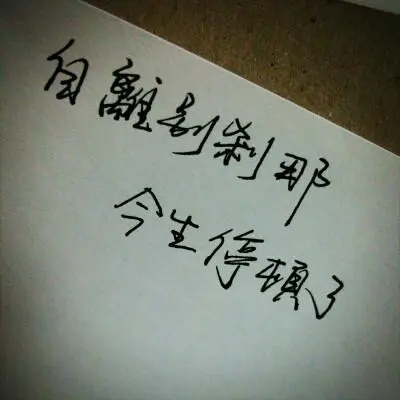 自離別剎那
今生停頓了